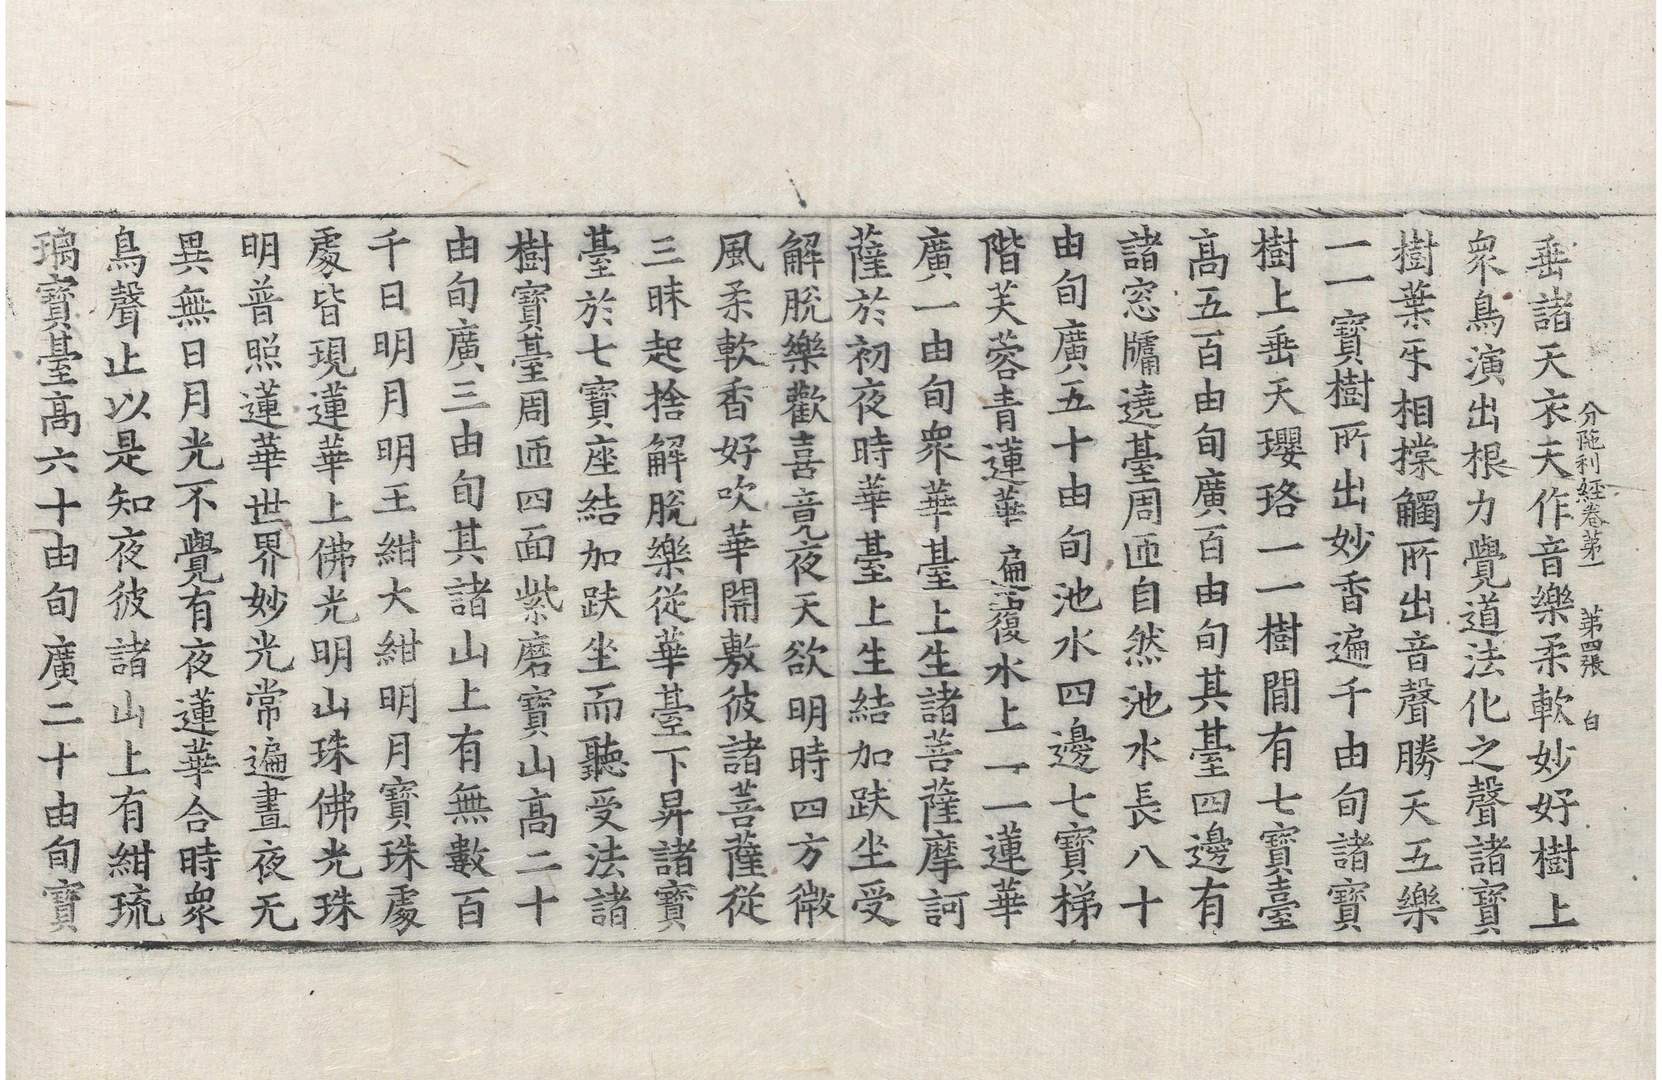 分陁利經卷第一 第四張 白
垂諸天衣天作音樂柔軟妙好樹上
衆鳥演出根力覺道法化之聲諸寶
樹葉㸦相摚觸所出音聲勝天五樂
一一寶樹所出妙香遍千由旬諸寶
樹上垂天瓔珞一一樹閒有七寶臺
高五百由旬廣百由旬其臺四邊有
諸窓牗遶臺周匝自然池水長八十
由旬廣五十由旬池水四邊七寶梯
階芙蓉青蓮華遍覆水上一一蓮華
廣一由旬衆華臺上生諸菩薩摩訶
薩於初夜時華臺上生結加趺坐受
解脫樂歡喜竟夜天欲明時四方微
風柔軟香好吹華開敷彼諸菩薩從
三昧起捨解脫樂從華臺下昇諸寶
臺於七寶座結加趺坐而聽受法諸
樹寶臺周匝四面紫磨寶山高二十
由旬廣三由旬其諸山上有無數百
千日明月明王紺大紺明月寶珠處
處皆現蓮華上佛光明山珠佛光珠
明普照蓮華世界妙光常遍晝夜无
異無日月光不覺有夜蓮華合時衆
鳥聲止以是知夜彼諸山上有紺琉
璃寶臺高六十由旬廣二十由旬寶